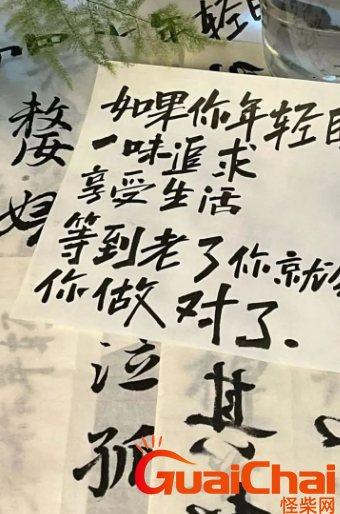 如果你年轻
一味追求
享受生活
等到老了你就
你做对了.
嫠
泣孤
其
GuaiChai
怪柴网